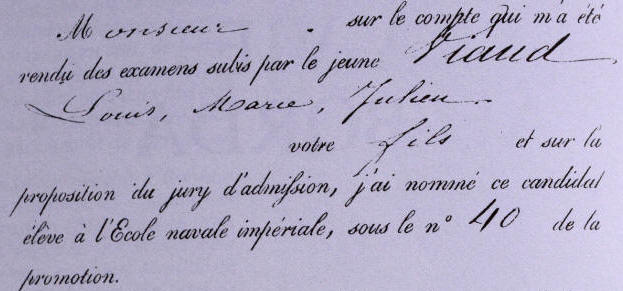 Monsieur . sur le compte qui m'a été
rendu des examens subis par le jeune Viaud
Louis, Marie, Julien.
votre fils et sur la
proposition du jury d'admission, j'ai nommé ce candidat
élève à l'Ecole navale impériale, sous le n° 40 de la
promotion.